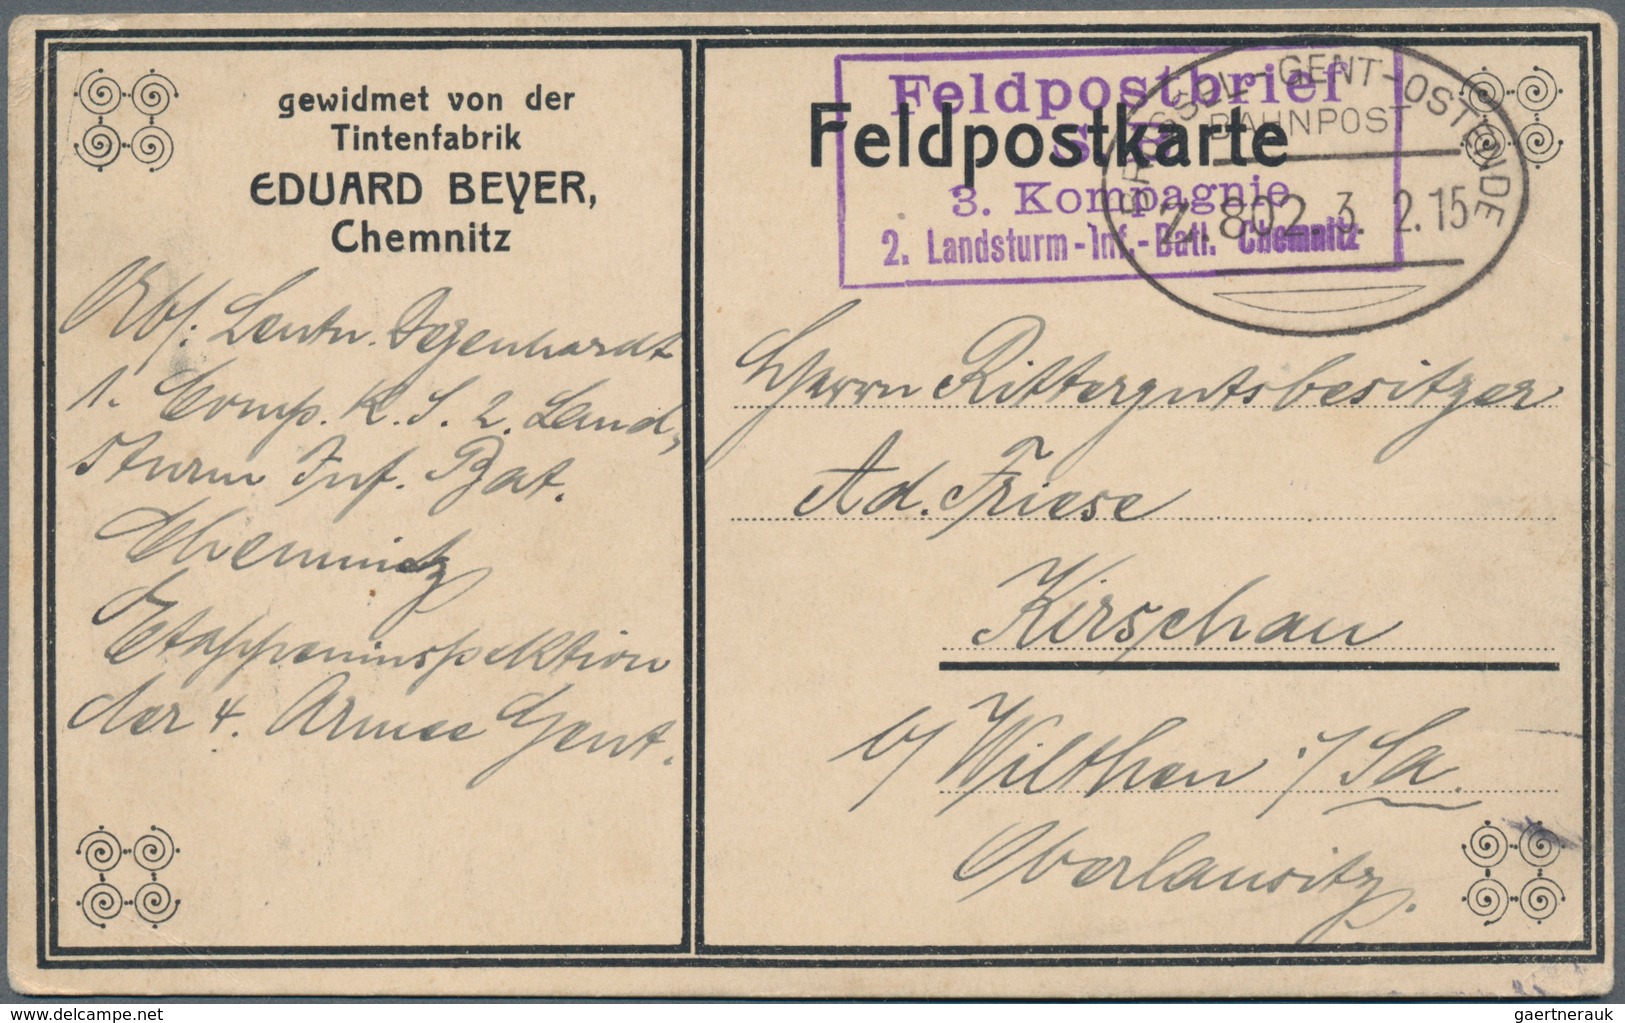 gewidmet von der
Tintenfabrik
EDUARD BEYER,
Chemnitz
Abs: Leutn. Degenhardt
1. Comp. K. S. 2. Land-
sturm Inf. Bat.
Chemnitz
Etappeninspektion
der 4. Armee Gent.
Feldpostkarte
Feldpostbrief
S. B.
3. Kompagnie
2. Landsturm-Inf.-Batl. Chemnitz
BRÜSSEL-GENT-OSTENDE
BAHNPOST
Z. 802. 3. 2.15
Herrn Rittergutsbesitzer
Ad. Friese
Kirschau
b/ Wilthen i/Sa.
Oberlausitz.
www.delcampe.net
gaertnerauk